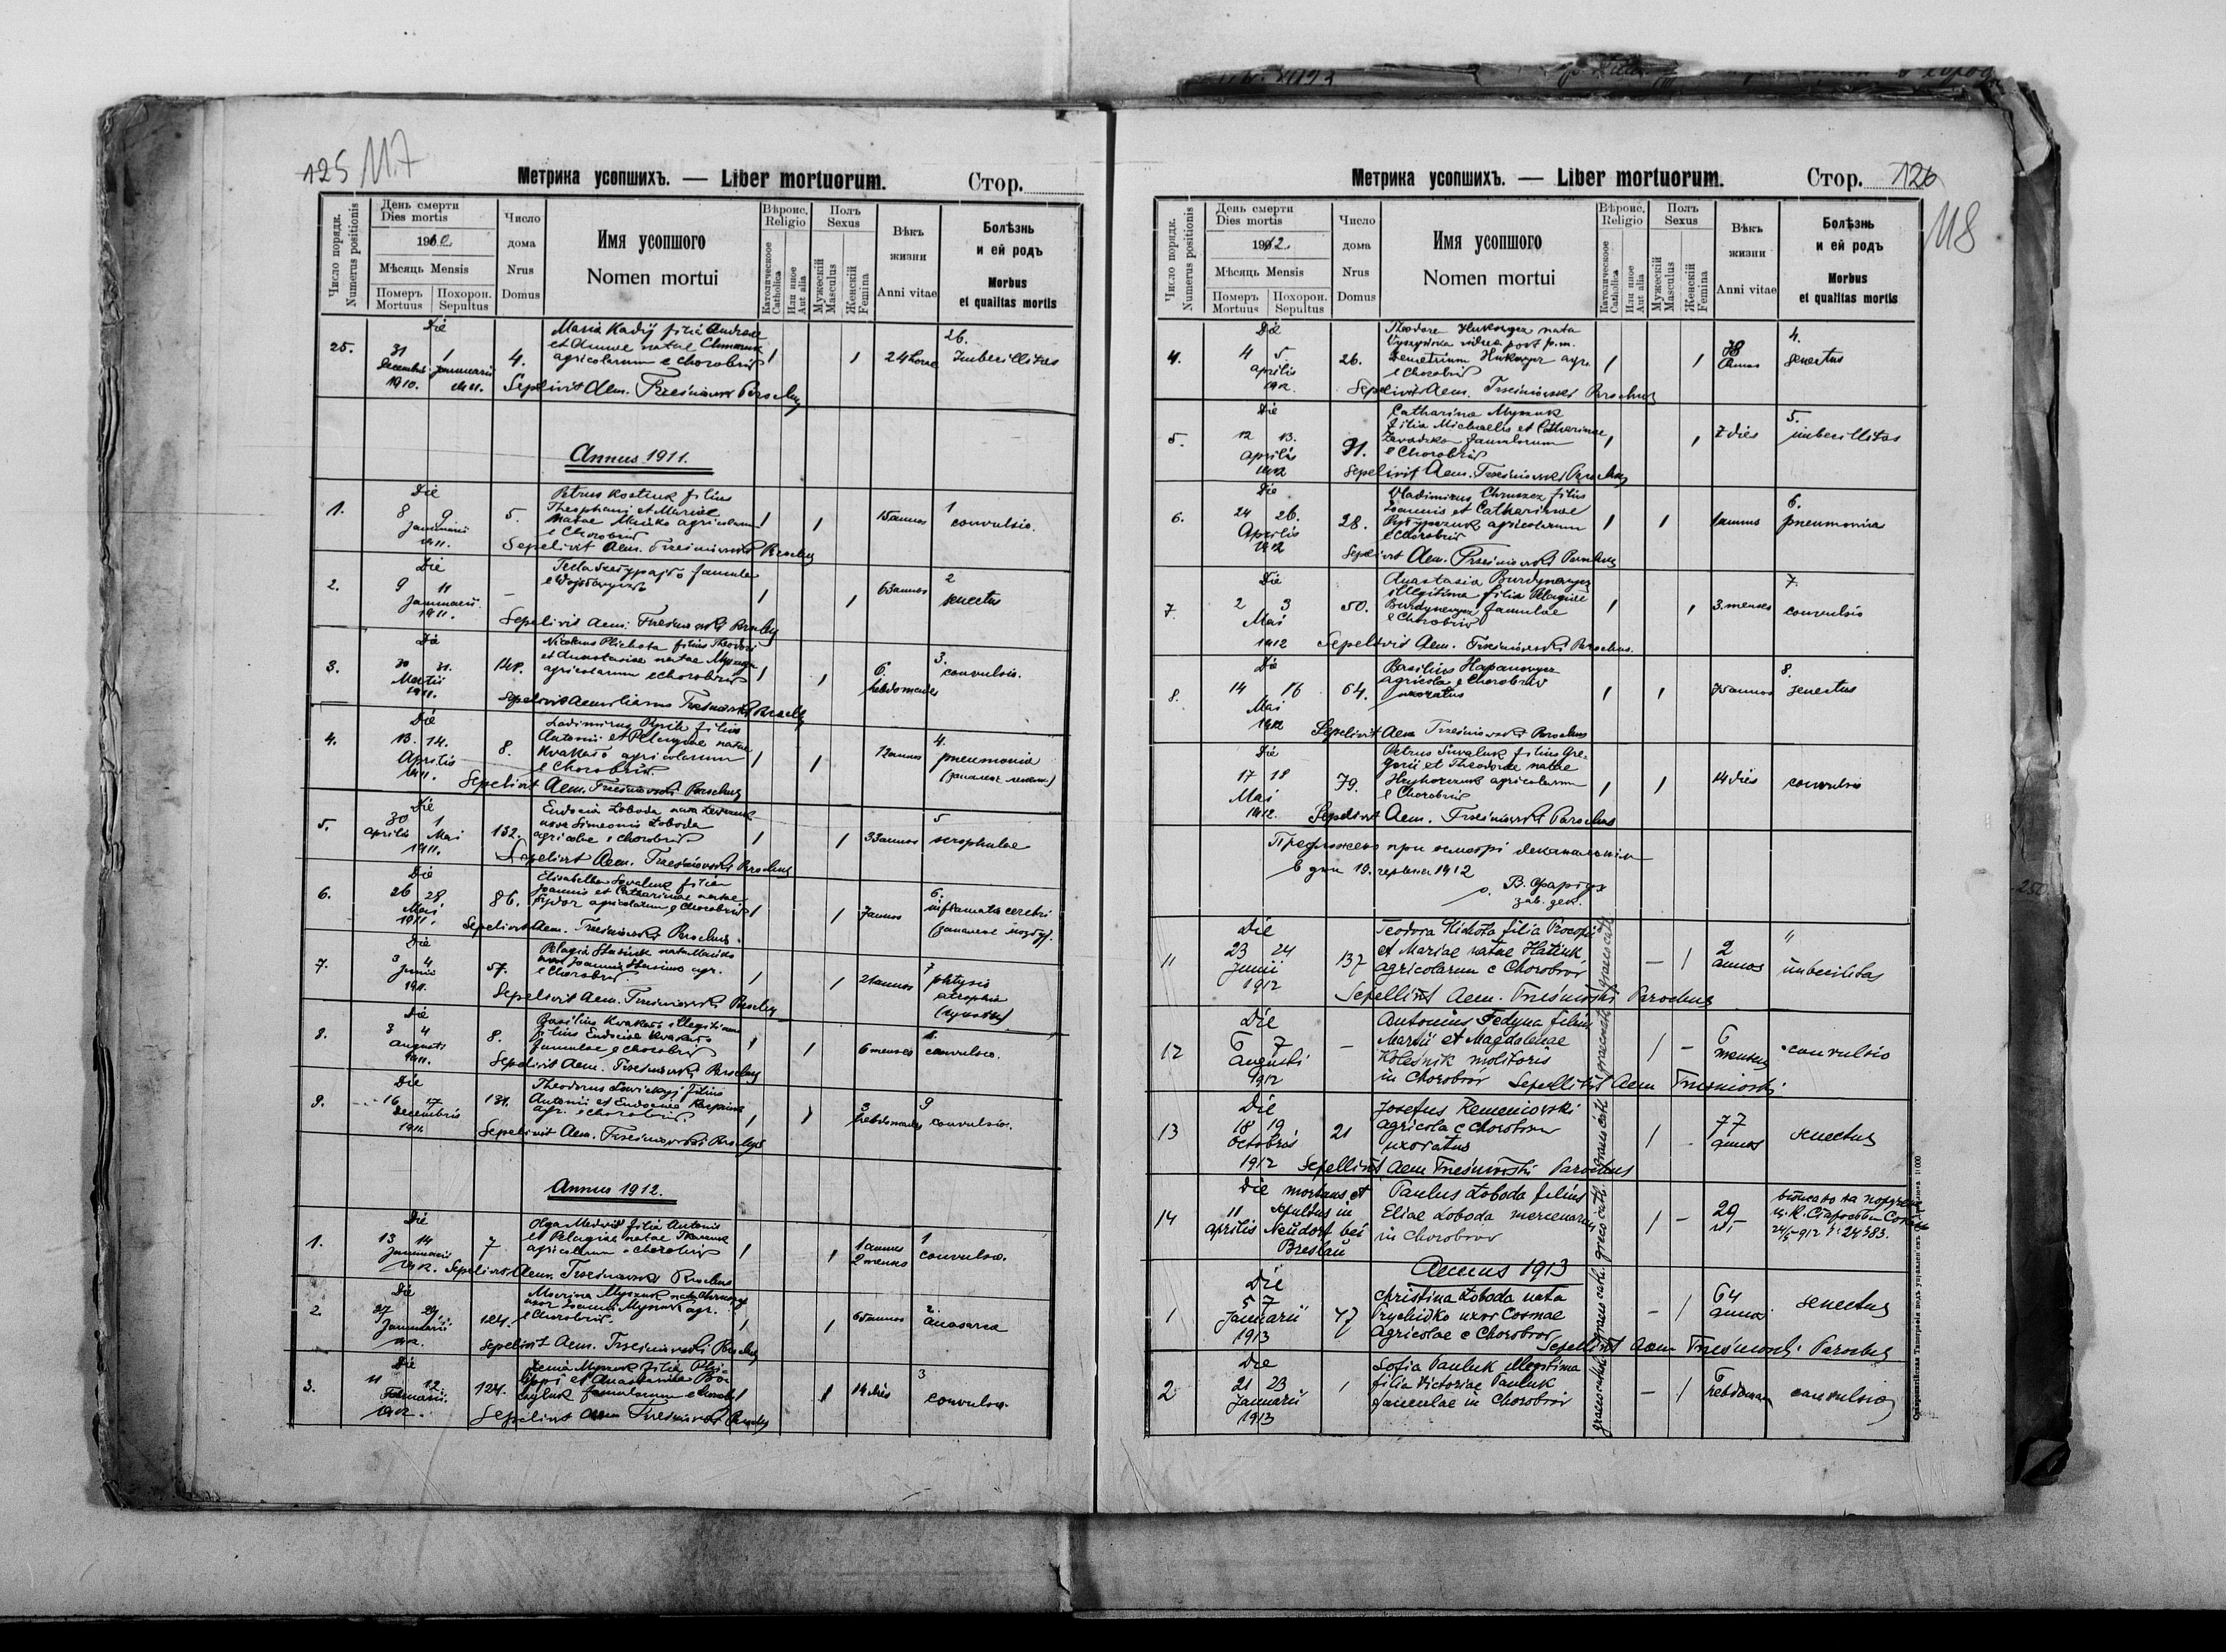 125 117
Метрика усопшихъ. — Liber mortuorum. Стор.
Число порядк. Numerus positionis
День смерти
Dies mortis
1910.
Мѣсяць Mensis
Померъ Mortuus
Похорон. Sepultus
Число дома Nrus Domus
Имя усопшого
Nomen mortui
Вѣроис. Religio
Католическое Catholica
Или иное Aut alia
Полъ Sexus
Мужескій Masculus
Женскій Femina
Вѣкъ жизни Anni vitae
Болѣзнь и ей родъ
Morbus et qualitas mortis
25. Die 31 1 Decembris Januarii 1910. 1911. 4.
Maria Kadij filia Andreae
et Annae natae
agricolarum e Chorobrów
1 1 24 horae 26. Imbecillitas
Sepelivit Aem. Trześniowski Parochus
Annus 1911.
1. Die 8 9 Januarii 1911. 5.
Petrus Kostiuk filius
Theophani et Mariae
natae Maćko agricolarum
e Chorobrów
1 1 15 annos 1 convulsio.
Sepelivit Aem. Trześniowski Parochus
2. Die 9 11 Januarii 1911. —
Tecla famula
1 1 63 annos 2 senectus
Sepelivit Aem. Trześniowski Parochus
3. Die 30 31. Martii 1911. 148.
Nicolaus Plichota filius Theodori
et Anastasiae natae
agricolarum e Chorobrów
1 1 6. hebdomades 3. convulsio.
Sepelivit Aemilianus Trześniowski Parochus
4. Die 13. 14. Aprilis 1911. 8.
Ladimirus filius
Antonii et Pelagiae natae
Kvakało agricolarum
e Chorobrów.
1 1 12 annos 4. pneumonia
Sepelivit Aem. Trześniowski Parochus
5. Die 30 1 Aprilis Mai 1911. 132.
Eudocia Łoboda nata
uxor Simeonis Łoboda
agricolae e Chorobrów
1 1 33 annos 5 scrophulae
Sepelivit Aem. Trześniowski Parochus
6. Die 26 28 Mai 1911. 86.
Elisabetha Suvaluk filia
Joannis et Catharinae natae
agricolarum e Chorobrów
1 1 7 annos 6. inflamatio cerebri
Sepelivit Aem. Trześniowski Parochus
7. Die 3 4 Junii 1911. 57.
Pelagia Stasiuk nata Maćko
uxor Joannis agr.
e Chorobrów
1 1 21 annos 7 phtysis
atrophia
(сухоты)
Sepelivit Aem. Trześniowski Parochus
8. Die 3 4 Augusti 1911. 8.
Basilius Kvakało illegitimus
filius Eudociae Kvakało
famulae e Chorobrów
1 1 6 menses 8. convulsio.
Sepelivit Aem. Trześniowski Parochus
9. Die 16 17 Decembris 1911. 131.
Theodorus Sawickyj filius
Antonii et Eudociae
agr. e Chorobrów.
1 1 3 hebdomades 9 convulsio.
Sepelivit Aem. Trześniowski Parochus
Annus 1912.
1. Die 13 14 Januarii 1912. 7
Olga Medwid filia Antonii
et Pelagiae natae Tkaczuk
agricolarum e Chorobrów
1 1 1 annus 2 menses 1 convulsio.
Sepelivit Aem. Trześniowski Parochus
2. Die 27 29. Januarii 1912. 124.
uxor Joannis Myszuk agr.
e Chorobrów.
1 1 65 annos 2. Anasarca
Sepelivit Aem. Trześniowski Parochus
3. Die 11 12 Februarii. 1912. 124.
Xenia Myszuk filia Phi-
lippi et Anastasiae
famulorum e Chorobrów
1 1 14 dies 3 convulsio.
Sepelivit Aem Trześniowski Parochus
Метрика усопшихъ. — Liber mortuorum. Стор. 126
118
Число порядк. Numerus positionis
День смерти
Dies mortis
1912.
Мѣсяць Mensis
Померъ Mortuus
Похорон. Sepultus
Число дома Nrus Domus
Имя усопшого
Nomen mortui
Вѣроис. Religio
Католическое Catholica
Или иное Aut alia
Полъ Sexus
Мужескій Masculus
Женскій Femina
Вѣкъ жизни Anni vitae
Болѣзнь и ей родъ
Morbus et qualitas mortis
4. Die 4 5 Aprilis 1912. 26.
nata
vidua post p.m.
Demetrium agr.
e Chorobrów
1 1 78 annos 4. senectus
Sepelivit Aem. Trześniowski Parochus
5. Die 12 13. Aprilis 1912 91.
Catharina Myszuk
filia Michaelis et Catharinae
Zavadzka famulorum
e Chorobrów
1 1 7 dies 5. imbecillitas
Sepelivit Aem. Trześniowski Parochus
6. Die 24 26. Aprilis 1912 28.
Vladimirus filius
Joannis et Catharinae
agricolarum
e Chorobrów
1 1 1 annus 6. pneumonia
Sepelivit Aem. Trześniowski Parochus
7. Die 2 3 Mai 1912 50.
Anastasia Burdynewycz
illegitima filia Pelagiae
Burdynewycz famulae
e Chorobrów
1 1 3. menses 7. convulsio
Sepelivit Aem. Trześniowski Parochus.
8. Die 14 16 Mai 1912 64.
Basilius Hapanowycz
agricola e Chorobrów
uxoratus
1 1 75 annos 8. senectus
Sepelivit Aem Trześniowski Parochus
Die 17 18 Mai 1912. 79.
Petrus Suvaluk filius Gre-
gorii et Theodorae natae
Hryhorczuk agricolarum
e Chorobrów
1 1 14 dies convulsio
Sepelivit Aem. Trześniowski Parochus
Предложено при
в дни 19. червня 1912
11 Die 23 24 Junii 1912 137
Teodora Plichota filia Procopii
et Mariae natae Hatiuk
agricolarum e Chorobrów
graeco cath. — 1 2 annos " imbecilitas
Sepellivit Aem. Trześniowski Parochus
12 Die 6 7 Augusti 1912 —
Antonius Fedyna filius
Martii et Magdalenae
Koleśnik molitoris
in Chorobrów
graeco cath. 1 — 6 menses convulsio
Sepellivit Aem Trześniowski
13 Die 18 19 Octobris 1912 21
Josefus Remeniowski
agricola e Chorobrów
uxoratus
graeco cath. 1 - 77 annos senectus
Sepellivit Aem Trześniowski Parochus
14 Die mortuus et
11 sepultus in
Aprilis Neudorf bei
Breslau
Paulus Łoboda filius
Eliae Łoboda mercenarii
in Chorobrow
greco cath. 1 — 29
24/5 912 24383.
Annus 1913
1 Die 5 7 Januarii 1913 47
Christina Łoboda nata
Prychidko uxor Cosmae
Agricolae e Chorobrow
graeco cath. — 1 64 annos senectus
Sepellivit Aem Trześniowski Parochus
2 Die 21 23 Januarii 1913 1
Sofia Pauluk illegitima
filia Victoriae Pauluk
famulae in Chorobrów
graeco cath. — 1 6 hebdomad convulsio